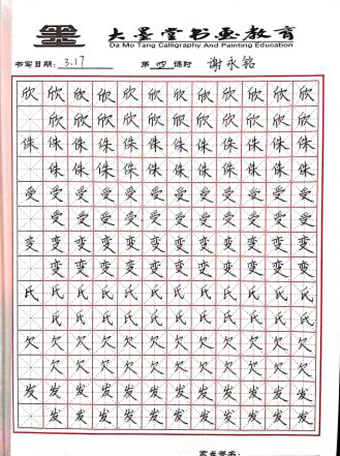 墨
大墨堂书画教育
Da Mo Tang Calligraphy And Painting Education
书写日期: 3.17 第 四 课时 谢永铭
欣欣欣欣欣欣欣欣欣欣欣欣
欣欣欣欣欣欣欣欣欣欣欣
侏侏侏侏侏侏侏侏侏侏侏侏
侏侏侏侏侏侏侏侏侏侏侏
受受受受受受受受受受受受
受受受受受受受受受受受
变变变变变变变变变变变变
变变变变变变变变变变变
氏氏氏氏氏氏氏氏氏氏氏氏
氏氏氏氏氏氏氏氏氏氏氏
欠欠欠欠欠欠欠欠欠欠欠欠
欠欠欠欠欠欠欠欠欠欠欠
发发发发发发发发发发发发
发发发发发发发发发发发